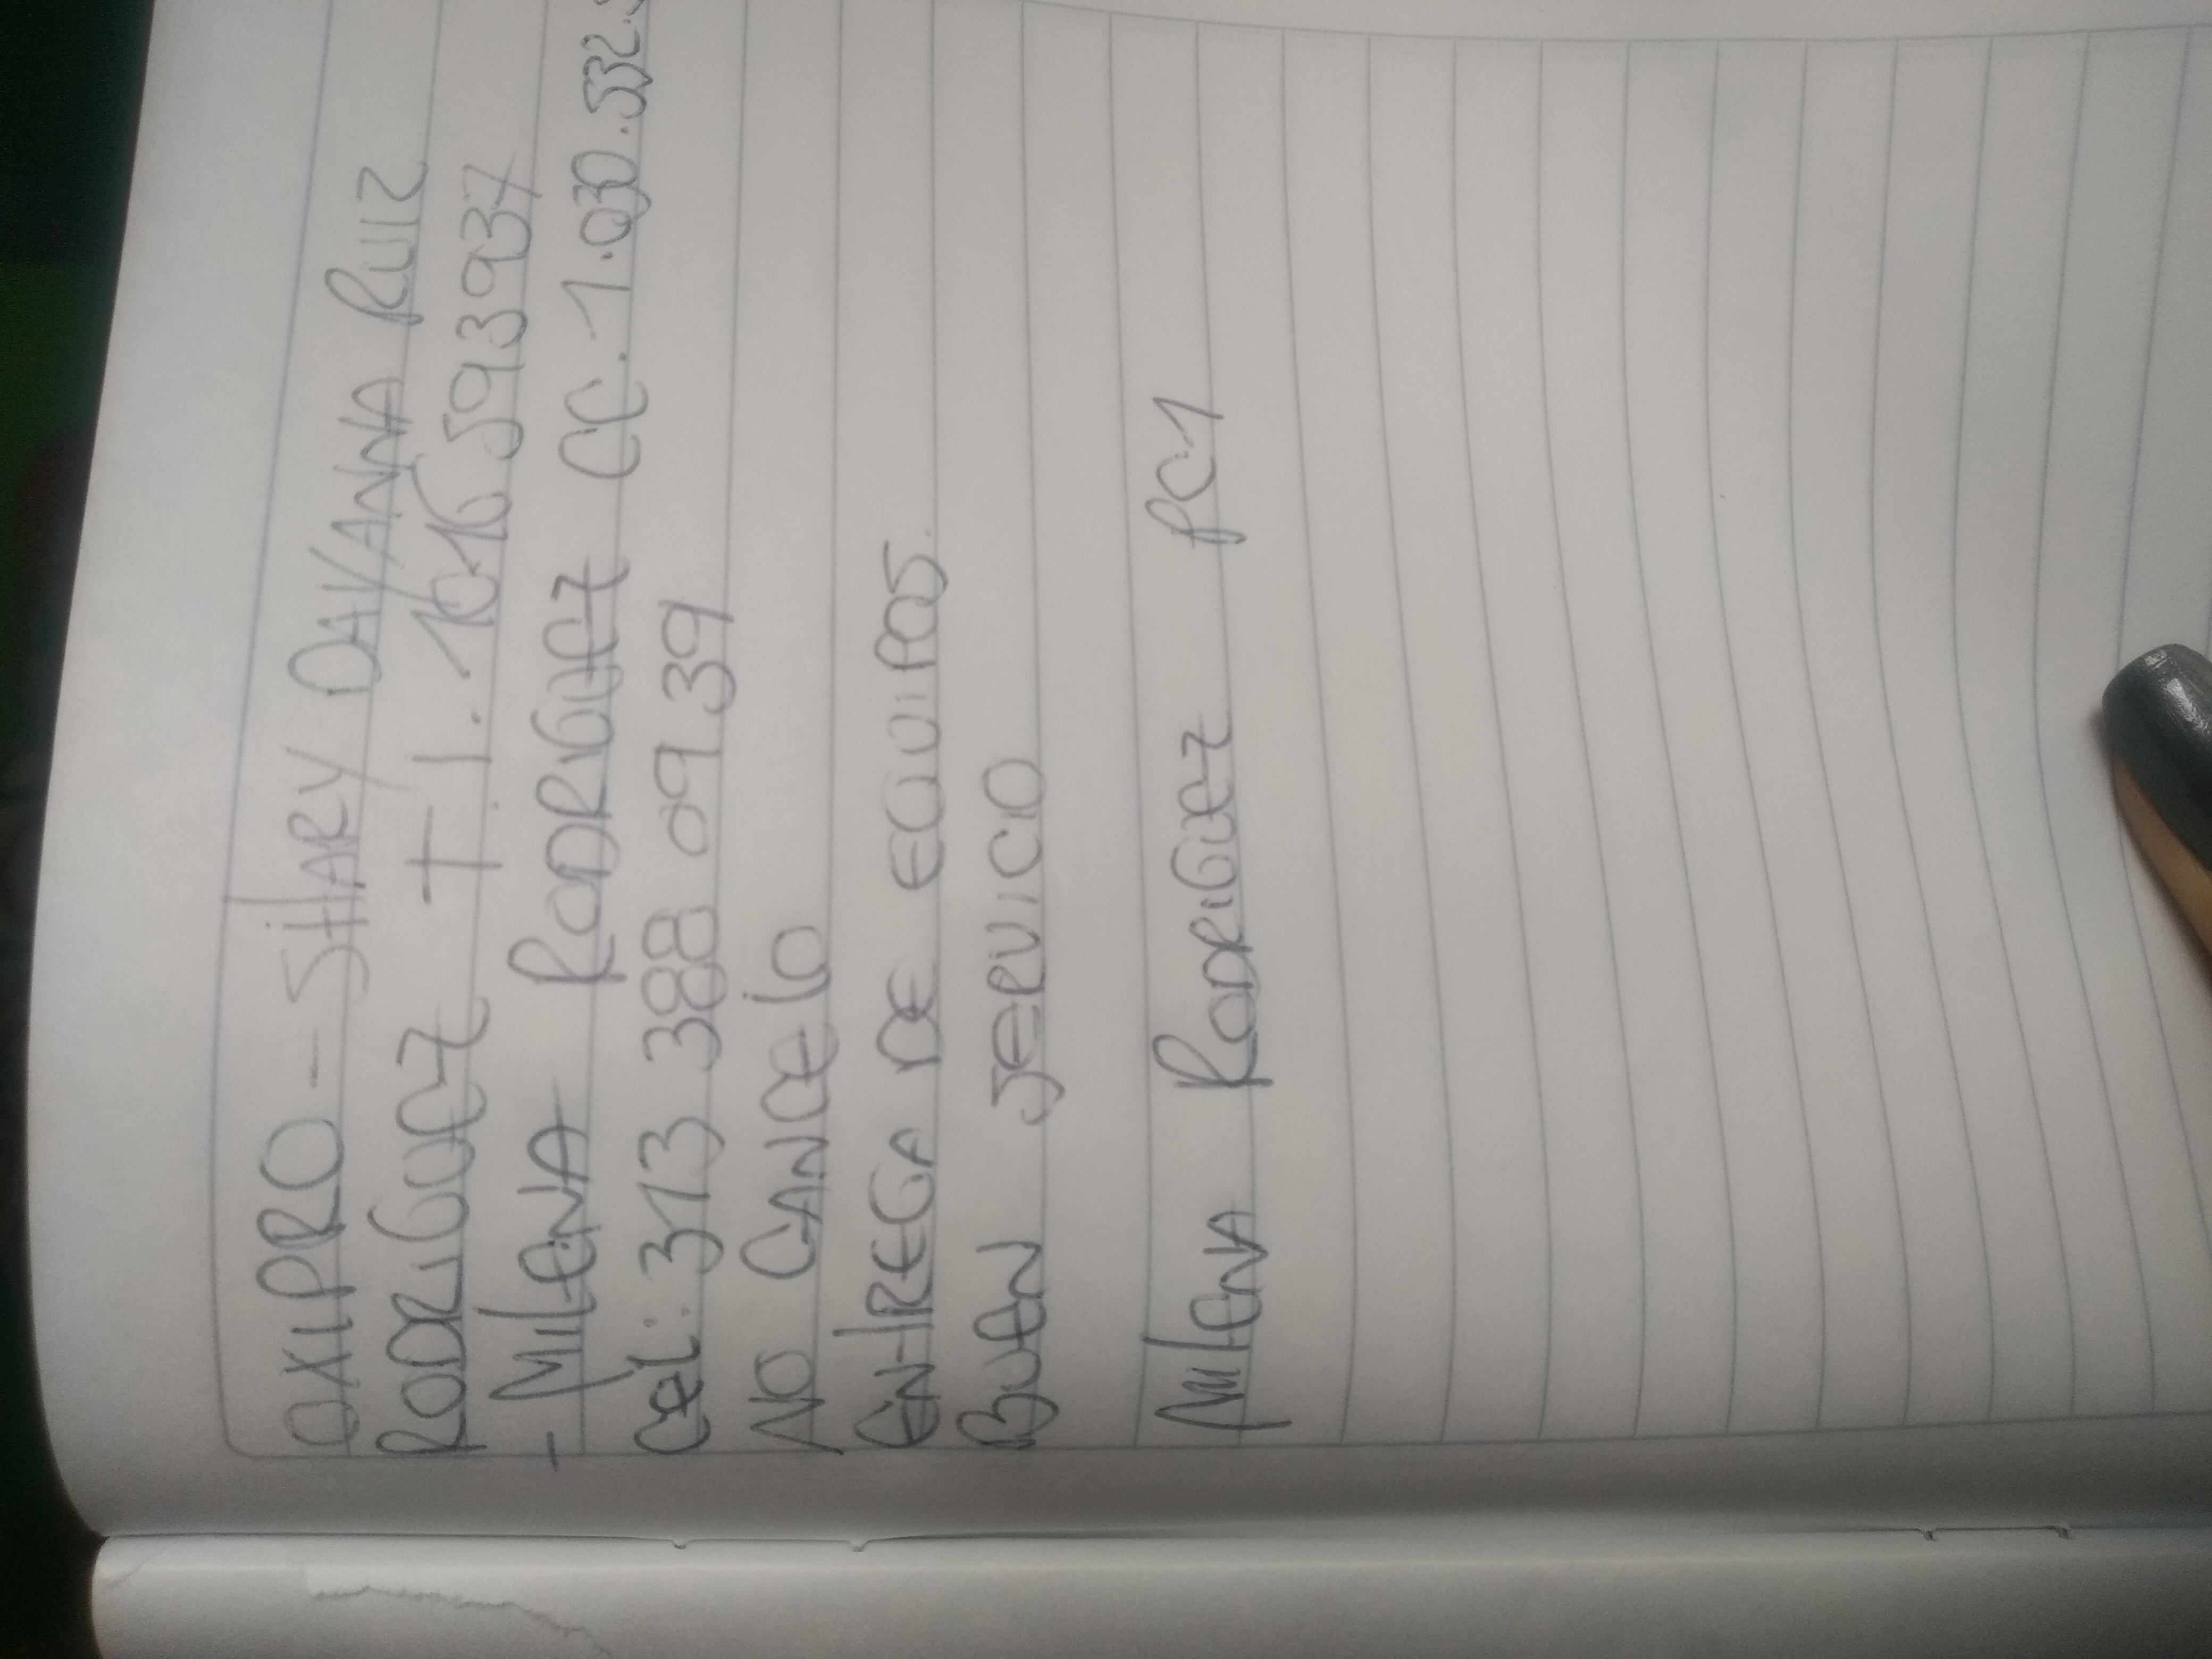 OXIPRO - SHARY DAYANNA RUIZ
RODRIGUEZ T.I. 1016593937
- MILENA RODRIGUEZ CC. 1.030.532.
Cel: 313 388 09 39
NO CANCELO
ENTREGA DE EQUIPOS.
BUEN SERVICIO
MILENA RODRIGUEZ